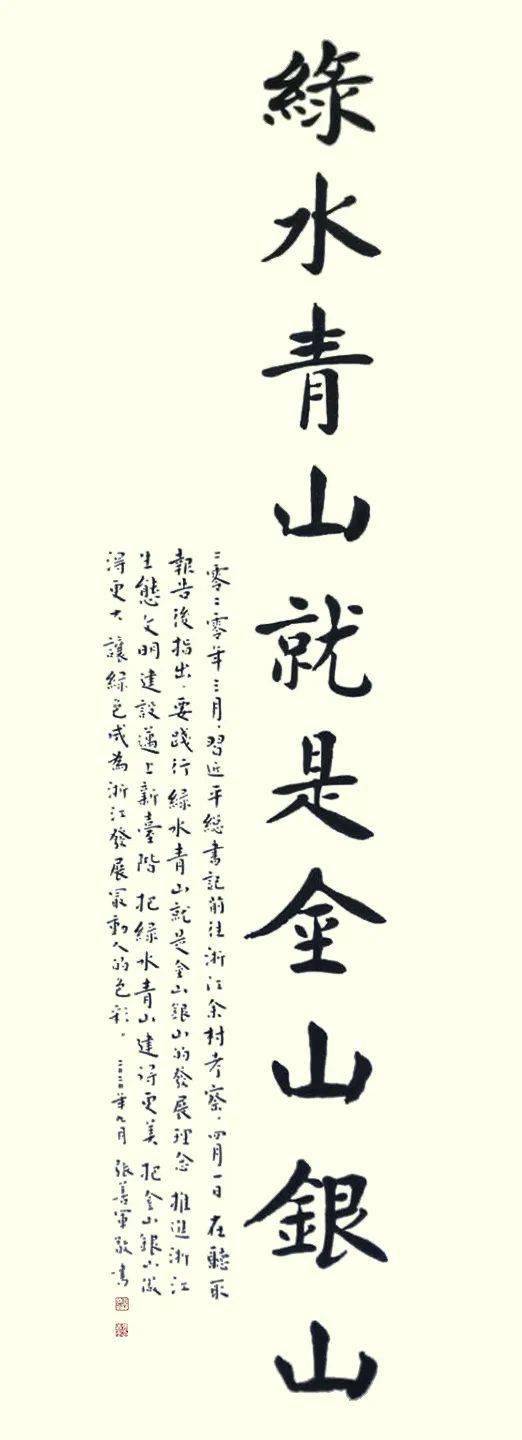 綠水青山就是金山銀山
二零二零年三月，習近平總書記前往浙江余村考察，四月一日在聽取
報告後指出，要踐行綠水青山就是金山銀山的發展理念 推進浙江
生態文明建設邁上新臺階 把綠水青山建得更美 把金山銀山做
得更大 讓綠色成為浙江發展最動人的色彩。二〇二〇年九月 張善軍敬書